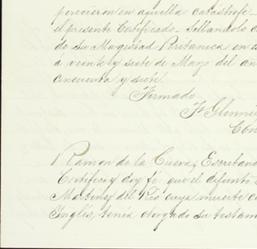 perecieron en aquella catastrofe
el presente Certificado. Sellandolo
de Su Magestad Britanica en
a veinte y siete de Marzo del año
cincuenta y siete
Firmado
Ramon de la Cueva, Escribano
Certifica y doy fé, que el difunto
Martinez del Rio cuya muerte
Ingles, tenia otorgado Su testam